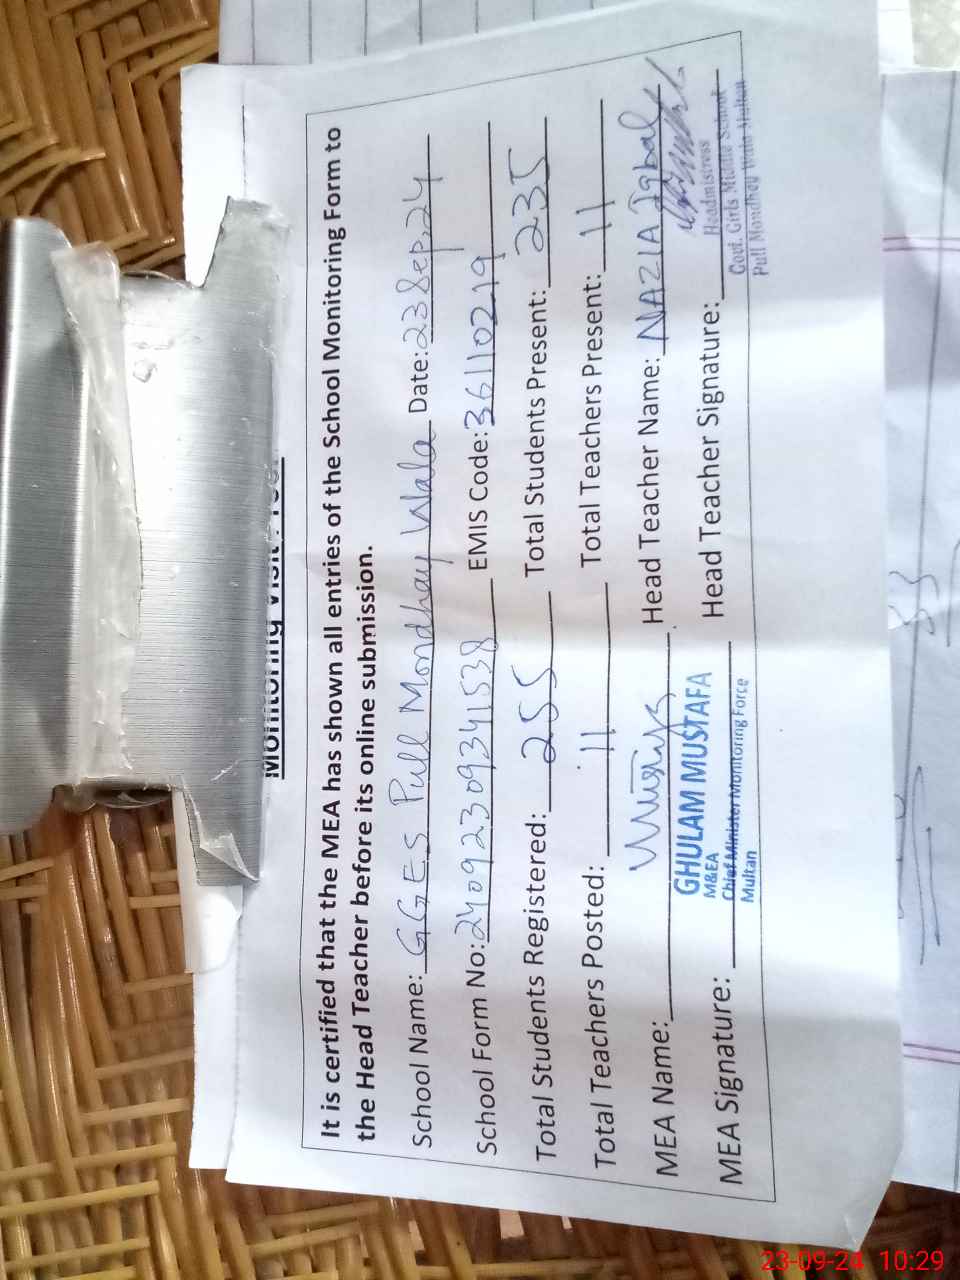 Monitoring Visit
It is certified that the MEA has shown all entries of the School Monitoring Form to
the Head Teacher before its online submission.
School Name: GGES Pull Mondhay Wala Date: 23 Sep, 24
School Form No: 240923093941538 EMIS Code: 36110219
Total Students Registered: 255 Total Students Present: 235
Total Teachers Posted: 11 Total Teachers Present: 11
MEA Name: Head Teacher Name: NAZIA Iqbal
GHULAM MUSTAFA
M&EA
Chief Minister Monitoring Force
Multan
MEA Signature: Head Teacher Signature:
Headmistress
Govt. Girls Middle School
Pull Mondhay Wala Multan
83
23-09-24 10:29